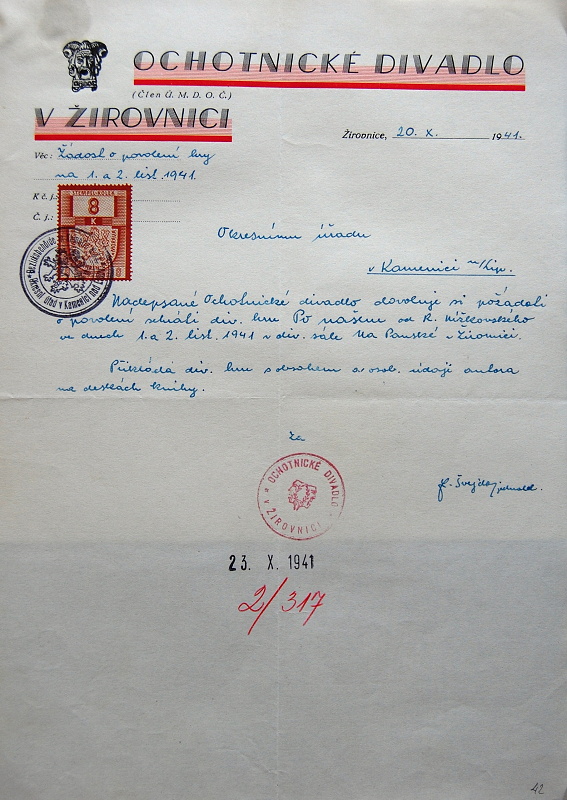 OCHOTNICKÉ DIVADLO
(Člen Ú. M. D. O. Č.)
V ŽIROVNICI
Žirovnice, 20. X. 1941.
Věc: Žádost o povolení hry
na 1. a 2. list. 1941.
K č. j.:
Č. j.:
STEMPEL-KOLEK
8
K
Okresnímu úřadu
v Kamenici n/Lip.
Nadepsané Ochotnické divadlo dovoluje si požádati
o povolení sehráti div. hru Po našem od R. Nížkovského
ve dnech 1. a 2. list. 1941 v div. sále Na Panské v Žirovnici.
Přikládá div. hru s obsahem a osob. údaji autora
na deskách knihy.
Za
OCHOTNICKÉ DIVADLO
V ŽIROVNICI
Švejda, jednatel.
23. X. 1941
2/317
42